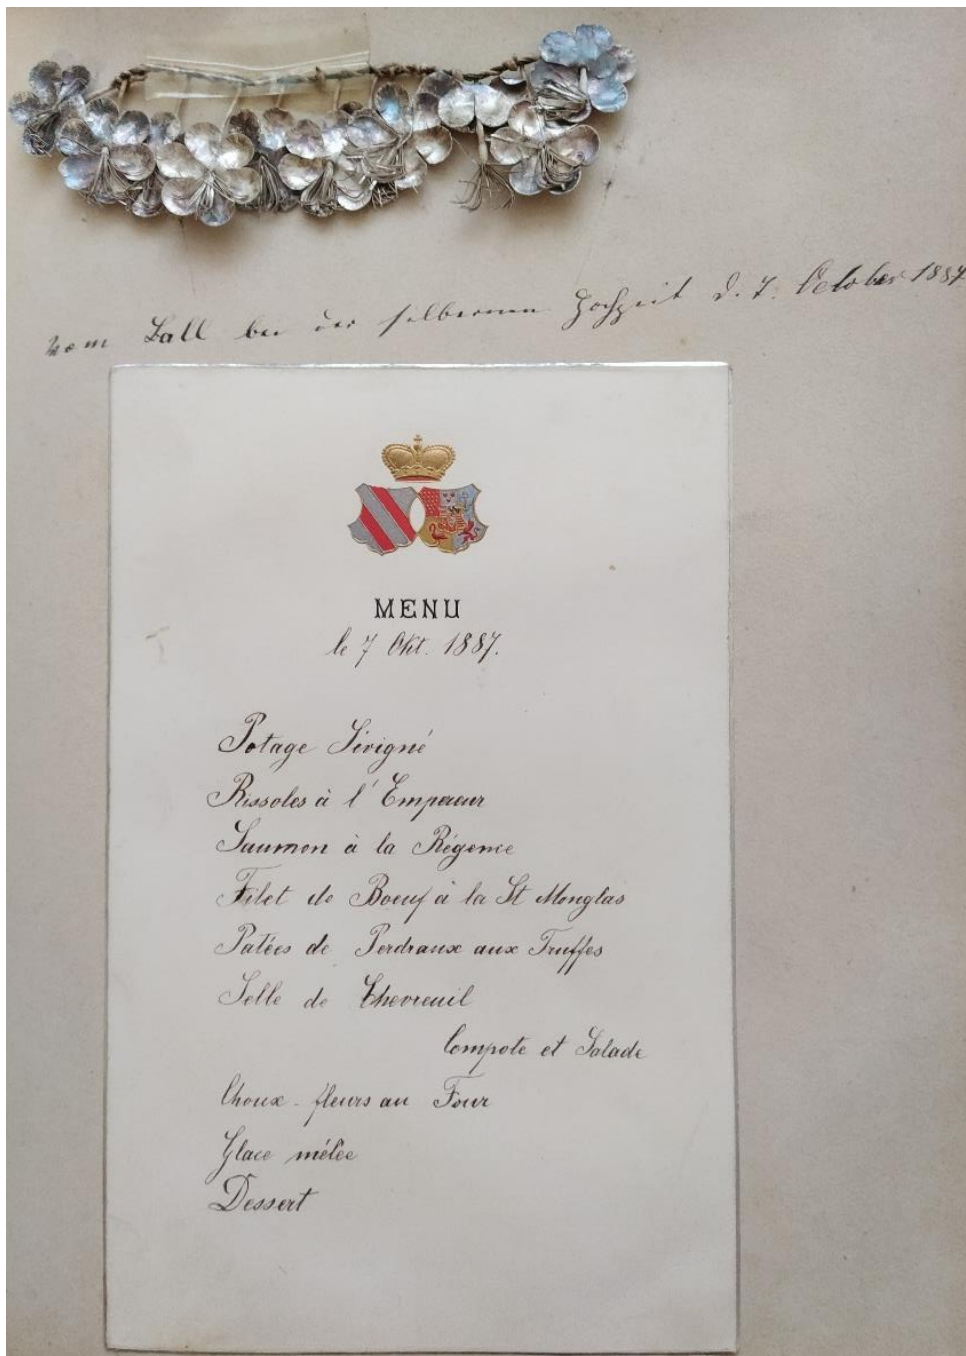 vom Ball bei der silbernen Hochzeit d. 7. October 1887
MENU
le 7 Okt. 1887.
Potage Sévigné
Rissoles à l'Empereur
Saumon à la Régence
Filet de Boeuf à la St Monglas
Patées de Perdraux aux Truffes
Selle de Chevreuil
Compote et Salade
Choux-fleurs au Four
Glace mêlée
Dessert